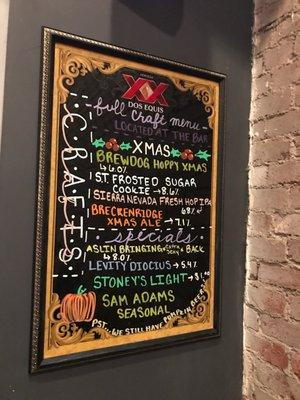 CERVEZA
XX
DOS EQUIS
full craft menu
LOCATED AT THE BAR
CRAFTS
XMAS
BREWDOG HOPPY XMAS
↳6.0%
1ST. FROSTED SUGAR
COOKIE → 8.6%
SIERRA NEVADA FRESH HOP IPA
6.8% ↵
BRECKENRIDGE
XMAS ALE → 7.1%
specials
ASLIN BRINGING EXTRA SEXY BACK
↳ 8.0%
LEVITY DIOCIUS → 5.4%
STONEY'S LIGHT →
SAM ADAMS
SEASONAL
PST...WE STILL HAVE PUMPKIN